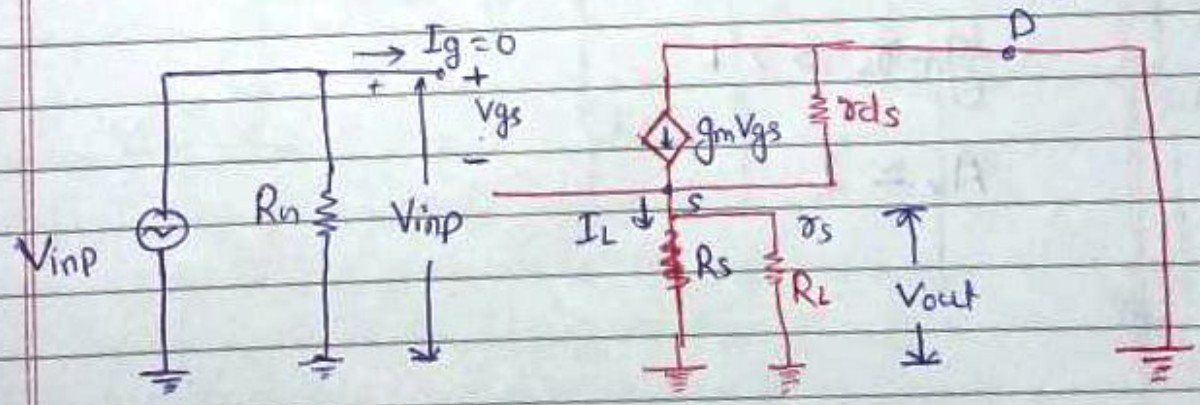 Ig = 0
D
+
+
Vgs
-
gmVgs
rds
Vinp
Rn
Vinp
IL
S
Rs
rs
RL
Vout